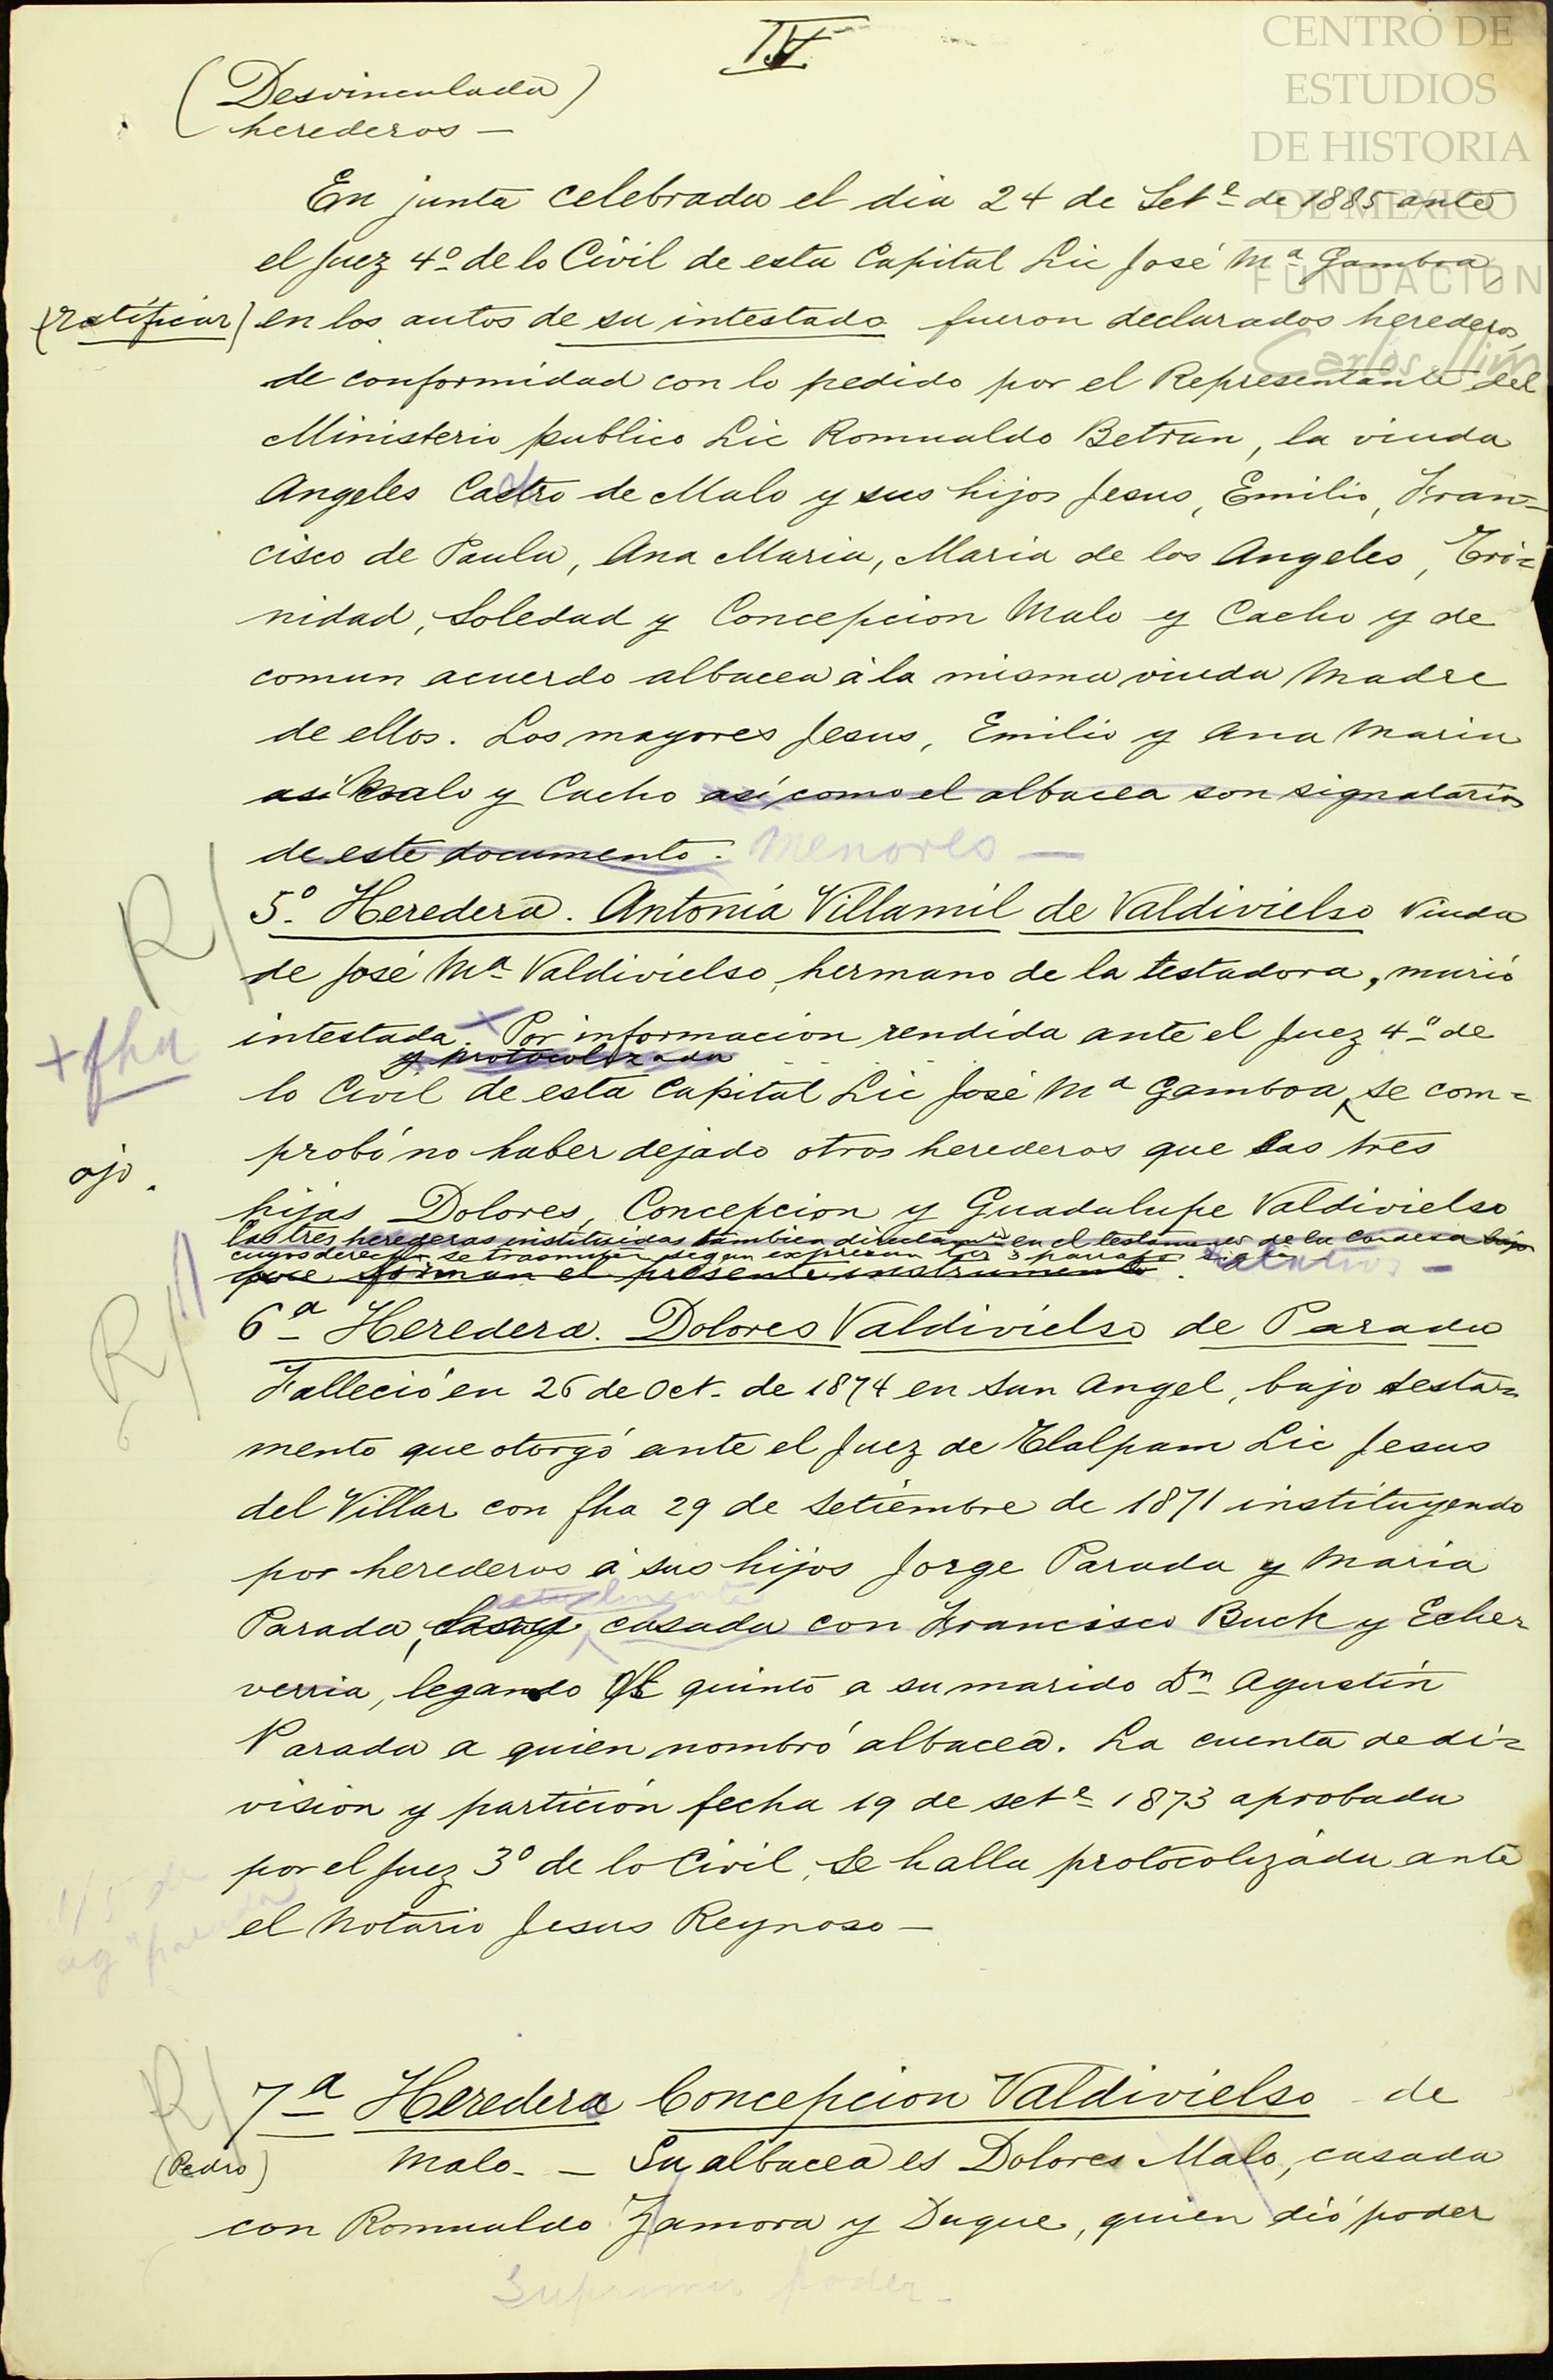 IV
CENTRO DE
ESTUDIOS
DE HISTORIA
DE MEXICO
FUNDACION
Carlos Slim
(Desvinculada)
herederos —
En junta celebrada el dia 24 de Setᵉ de 1885 ante
el Juez 4º de lo Civil de esta Capital Lic José Mª Gamboa,
(ratificar) en los autos de su intestado fueron declarados herederos,
de conformidad con lo pedido por el Representante del
Ministerio publico Lic Romualdo Betran, la viuda
Angeles Castro de Malo y sus hijos Jesus, Emilio, Fran=
cisco de Paula, Ana Maria, Maria de los Angeles, Tri=
nidad, Soledad y Concepcion Malo y Cacho y de
comun acuerdo albacea á la misma viuda Madre
de ellos. Los mayores Jesus, Emilio y Ana Maria
asi Malo y Cacho así como el albacea son signatarios
de este documento. Menores —
R/
5º. Heredera. Antonia Villamil de Valdivielso Viuda
de José Mª Valdivielso, hermano de la testadora, murió
intestada. + Por informacion rendida ante el Juez 4º de
+ fha
y protocolizada
lo Civil de esta Capital Lic José Mª Gamboa, se com=
probó no haber dejado otros herederos que las tres
ojo.
hijas Dolores, Concepcion y Guadalupe Valdivielso
las tres herederas instituidas tambien directamte en el testamto de la Condesa bajo
cuyos derechos se trasmiten segun expresan los 3 parrafos sigtes
que forman el presente instrumento.
R/
6ª Heredera. Dolores Valdivielso de Parada
Falleció en 26 de Oct. de 1874 en San Angel, bajo testa=
6
mento que otorgó ante el Juez de Tlalpam Lic Jesus
del Villar con fha 29 de Setiembre de 1871 instituyendo
por herederos á sus hijos Jorge Parada y Maria
Parada, casada con Francisco Buch y Eche=
verria, legando el quinto a su marido Dⁿ Agustin
Parada a quien nombró albacea. La cuenta de di=
vision y partición fecha 19 de setᵉ 1873 aprobada
por el Juez 3º de lo Civil, se halla protocolizada ante
1/5 de
el Notario Jesus Reynoso —
R/
7ª Heredera Concepcion Valdivielso de
(Pedro) Malo. — Su albacea es Dolores Malo, casada
con Romualdo Zamora y Duque, quien dió poder
Suprimir poder —